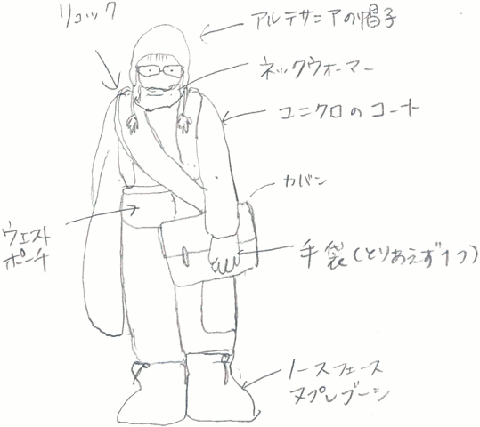 リュック
アルテサニアの帽子
ネックウォーマー
ユニクロのコート
カバン
ウエスト
ポーチ
手袋(とりあえず1つ)
ノースフェース
ヌプシブーツ